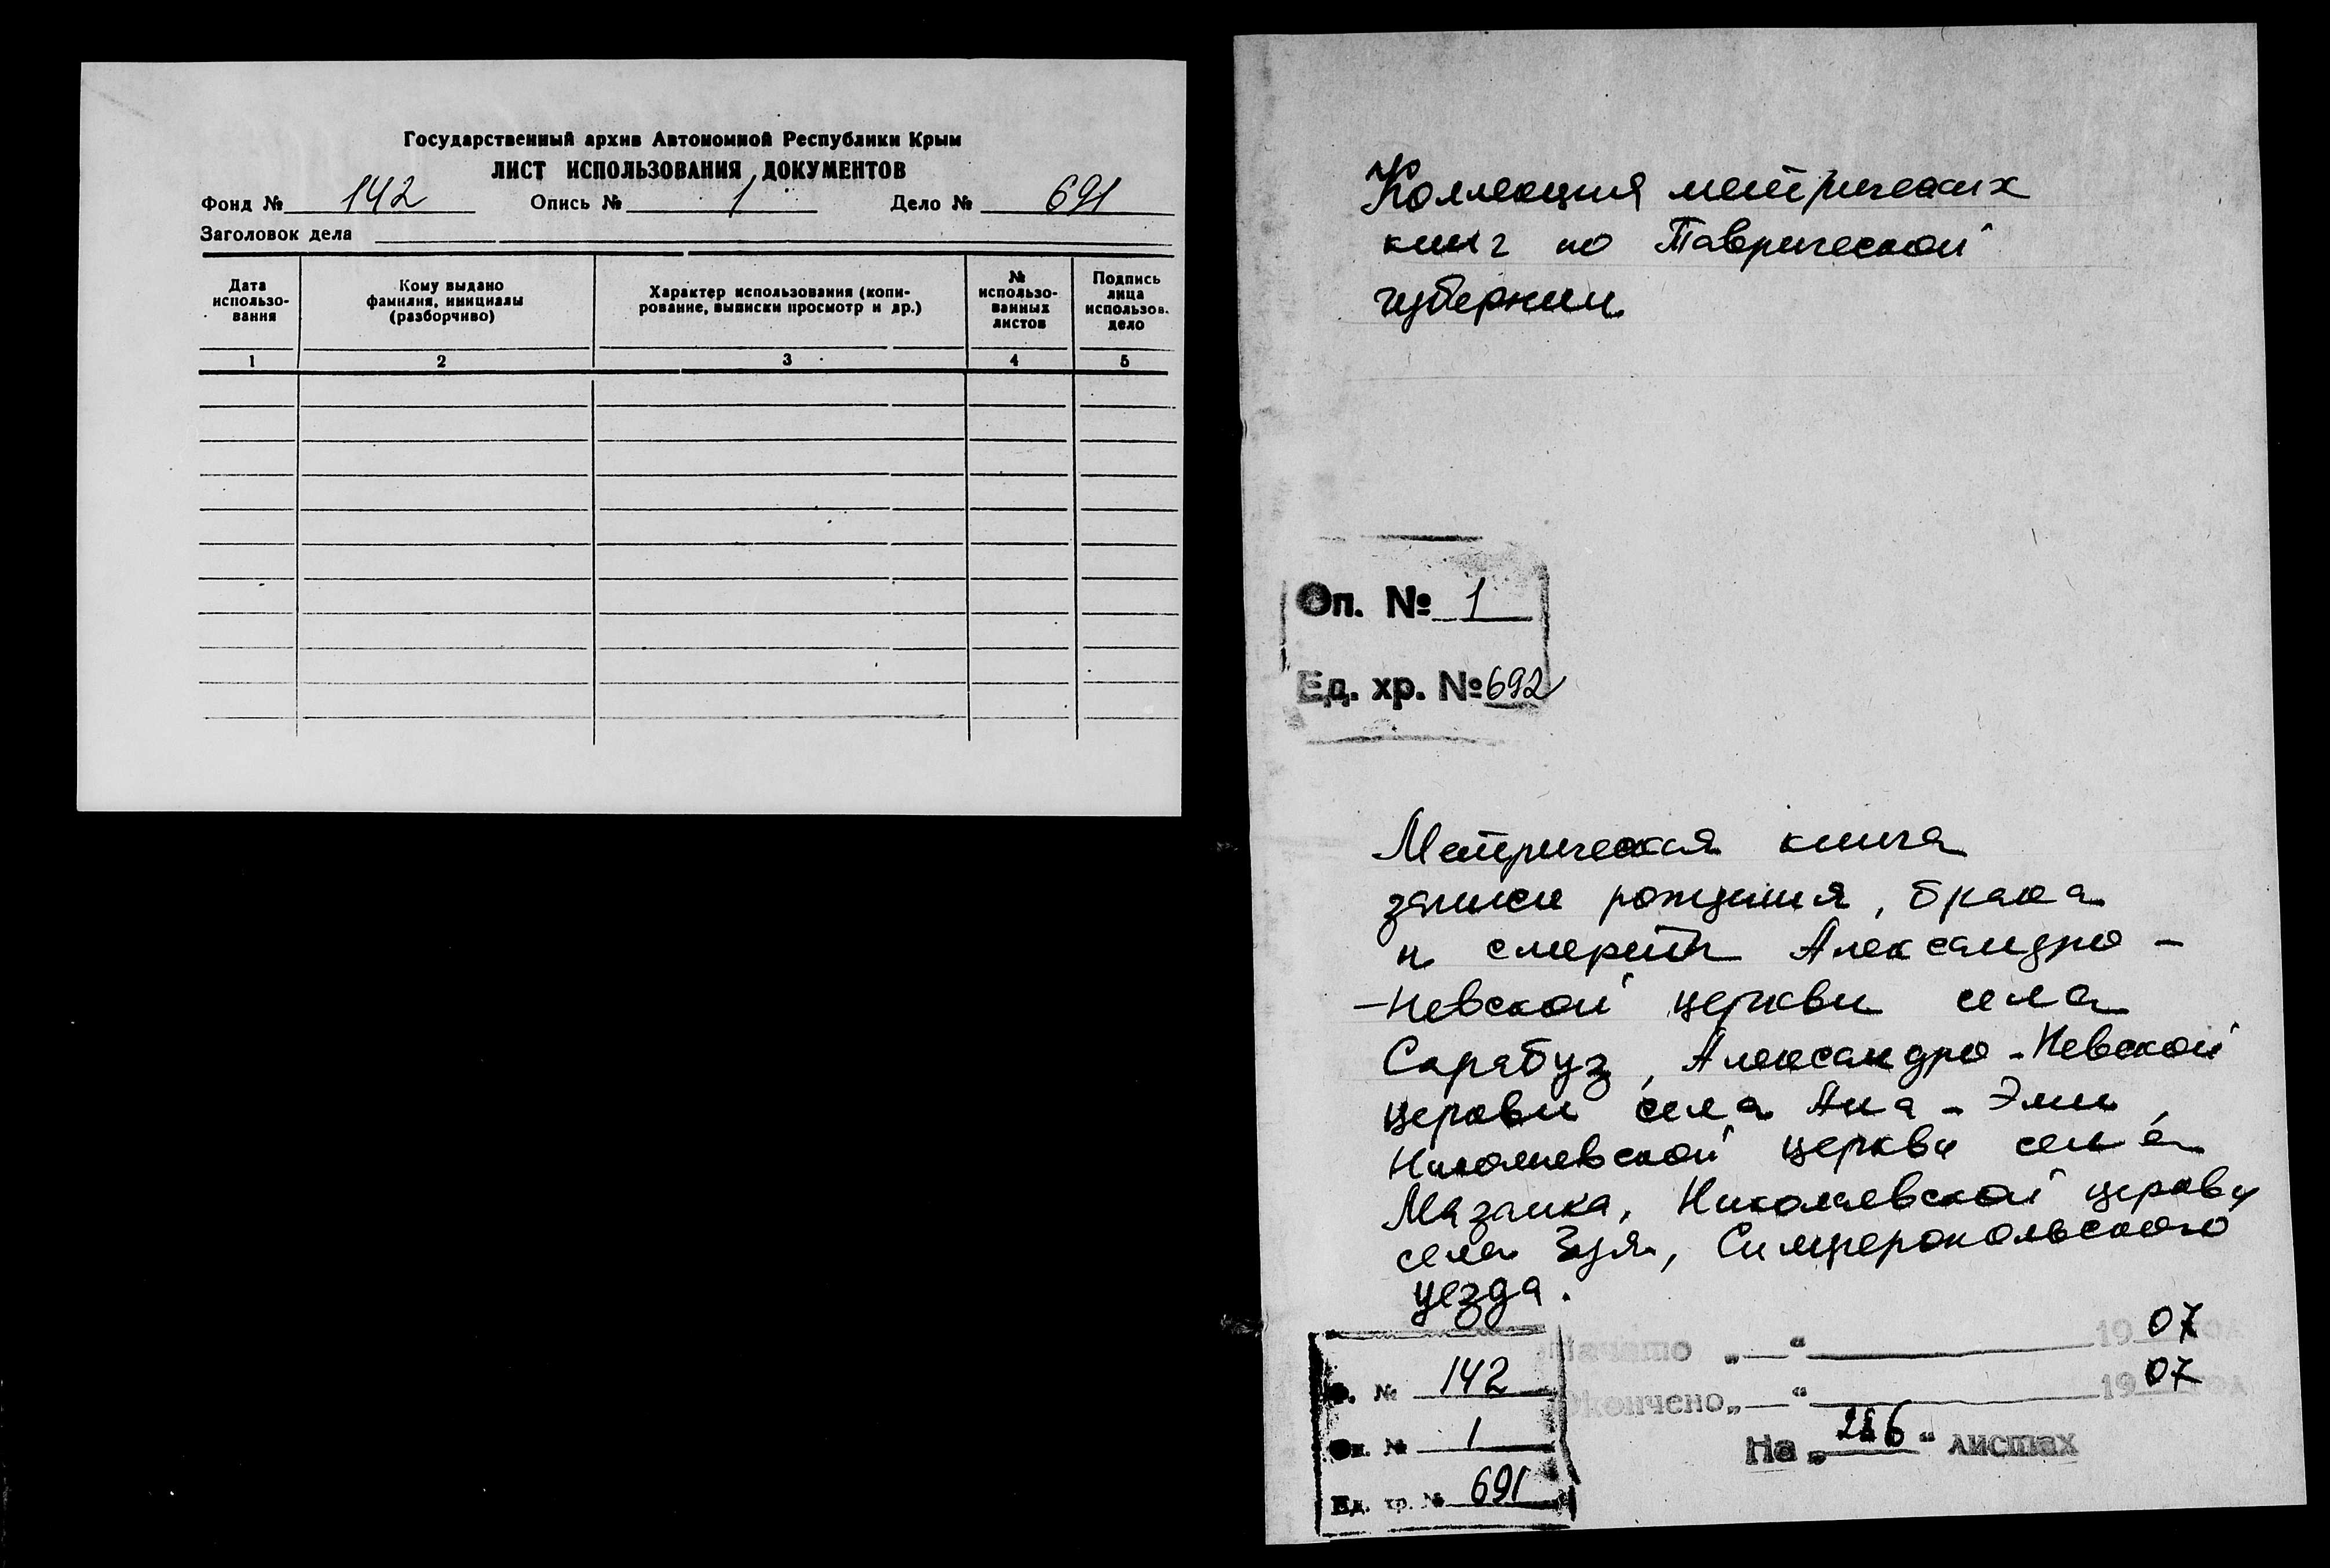 Государственный архив Автономной Республики Крым
ЛИСТ ИСПОЛЬЗОВАНИЯ ДОКУМЕНТОВ
Фонд № 142 Опись № 1 Дело № 691
Заголовок дела
Дата использо-вания
Кому выдано фамилия, инициалы (разборчиво)
Характер использования (копи-рование, выписки просмотр и др.)
№ использо-ванных листов
Подпись лица использов. дело
1 2 3 4 5
Коллекция метрических
книг по Таврической
губернии
Оп. № 1
Ед. хр. № 692
Метрическая книга
записи рождения, брака
и смерти Александро-
-Невской церкви села
Сарабуз, Александро-Невской
церкви села Ана-Эли,
Николаевской церкви села
Мазанка, Николаевской церкви
села Зуя, Симферопольского
уезда.
Начато „__“ 1907 год
Окончено „__“ 1907 год
На „ “ листах
Ф. № 142
Оп. № 1
Ед. хр. № 691